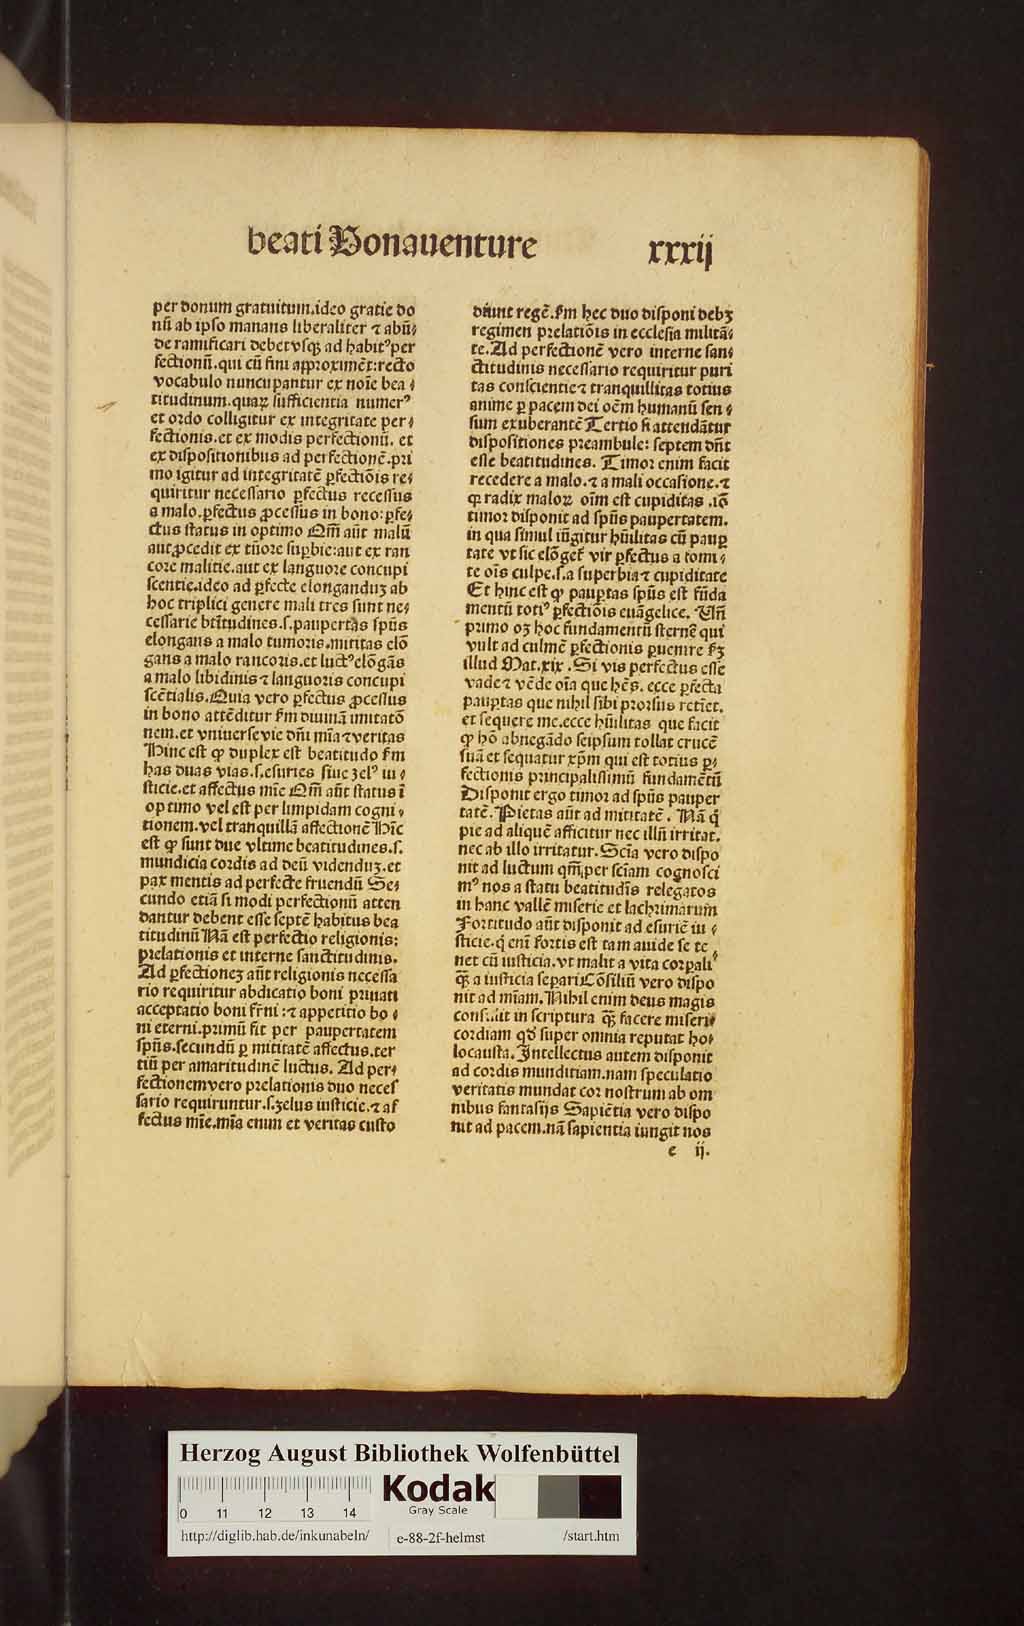 beati Bonauenture xxxij
per donum gratuitum.ideo gratie do
nū ab ipso manans liberaliter ⁊ abū⸗
de ramificari debet vsqꝫ ad habitꝰ per
fectionū.qui cū fini approximēt:recto
vocabulo nuncupantur ex noīe bea⸗
titudinum.quaꝝ sufficientia numerꝰ
et ordo colligitur ex integritate per⸗
fectionis.et ex modis perfectionū. et
ex dispositionibus ad perfectionē.pri
mo igitur ad integritatē ꝑfectiōis re⸗
quiritur necessario ꝑfectus recessus
a malo.ꝑfectus ꝓcessus in bono:ꝑfe⸗
ctus status in optimo Qm̄ aūt malū
aut ꝓcedit ex tūore suꝑbie:aut ex ran
core malitie.aut ex languore concupi
scentie.ideo ad ꝑfecte elonganduꝫ ab
hoc triplici genere mali tres sunt ne⸗
cessarie btītudines.s.paupertas spūs
elongans a malo tumoris.mititas elō
gans a malo rancoris.et luctꝰ elōgās
a malo libidinis ⁊ languoris concupi
scētialis.Quia vero ꝑfectus ꝓcessus
in bono attēditur ẜm diuinā imitatō
nem.et vniuerse vie dn̄i mīa ⁊ veritas
Hinc est ꝙ duplex est beatitudo ẜm
has duas vias.s.esuries siue zelꝰ iu⸗
sticie.et affectus mīe Qm̄ aūt status ī
optimo vel est per limpidam cogni⸗
tionem.vel tranquillā affectionē Hīc
est ꝙ sunt due vltime beatitudines.s.
mundicia cordis ad deū videnduꝫ.et
pax mentis ad perfecte fruendū Se⸗
cundo etiā si modi perfectionū atten
dantur debent esse septē habitus bea
titudinū Nā est perfectio religionis:
prelationis et interne sanctitudinis.
Ad ꝑfectioneꝫ aūt religionis necessa
rio requiritur abdicatio boni priuati
acceptatio boni fr̄ni:⁊ appetitio bo⸗
ni eterni.primū fit per paupertatem
spūs.secundū ꝑ mititatē affectus.ter
tiū per amaritudinē luctus. Ad per⸗
fectionem vero prelationis duo neces
sario requiruntur.s.zelus iusticie.⁊ af
fectus mīe.mīa enim et veritas custo
diunt regē.ẜm hec duo disponi debꝫ
regimen prelatiōis in ecclesia militā⸗
te.Ad perfectionē vero interne san⸗
ctitudinis necessario requiritur puri
tas conscientie ⁊ tranquillitas totius
anime ꝑ pacem dei oēm humanū sen⸗
sum exuberantē Tertio si attendātur
dispositiones preambule: septem dn̄t
esse beatitudines. Timor enim facit
recedere a malo.⁊ a mali occasione.⁊
qꝛ radix maloꝝ oīm est cupiditas.iō
timor disponit ad spūs paupertatem.
in qua simul iūgitur hūilitas cū pauꝑ
tate vt sic elōget̄ vir ꝑfectus a fomi⸗
te oīs culpe.s.a superbia ⁊ cupiditate
Et hinc est ꝙ pauꝑtas spūs est fūda
mentū totiꝰ ꝑfectiōis euāgelice. Vn̄
primo oꝫ hoc fundamentū sternē qui
vult ad culmē ꝑfectionis ꝑuenire ẜꝫ
illud Mat.xix.Si vis perfectus esse
vade ⁊ vēde oīa que hēs. ecce ꝑfecta
pauꝑtas que nihil sibi prorsus retīet.
et sequere me.ecce hūilitas que facit
ꝙ hō abnegādo seipsum tollat crucē
suā et sequatur xp̄m qui est totius ꝑ⸗
fectionis principalissimū fundamētū
Disponit ergo timor ad spūs pauper
tatē.Pietas aūt ad mititatē. Nā q̄
pie ad aliquē afficitur nec illū irritat.
nec ab illo irritatur.Scīa vero dispo
nit ad luctum qm̄ per sciam cognosci
mꝰ nos a statu beatitudīs relegatos
in hanc vallē miserie et lachrimarum
Fortitudo aūt disponit ad esuriē iu⸗
sticie.q̄ enī fortis est tam auide se te
net cū iusticia.vt malit a vita corꝑaliꝰ
qꝫ̄ a iusticia seꝑari Cōsiliū vero dispo
nit ad mīam.Nihil enim deus magis
consulit in scriptura qꝫ̄ facere miseri⸗
cordiam qd̄ super omnia reputat ho⸗
locausta.Intellectus autem disponit
ad cordis munditiam.nam speculatio
veritatis mundat cor nostrum ab om
nibus fantasijs Sapiētia vero dispo
nit ad pacem.nā sapientia iungit nos
e ij.
Herzog August Bibliothek Wolfenbüttel
0 11 12 13 14
Kodak
Gray Scale
http://diglib.hab.de/inkunabeln/ e-88-2f-helmst /start.htm